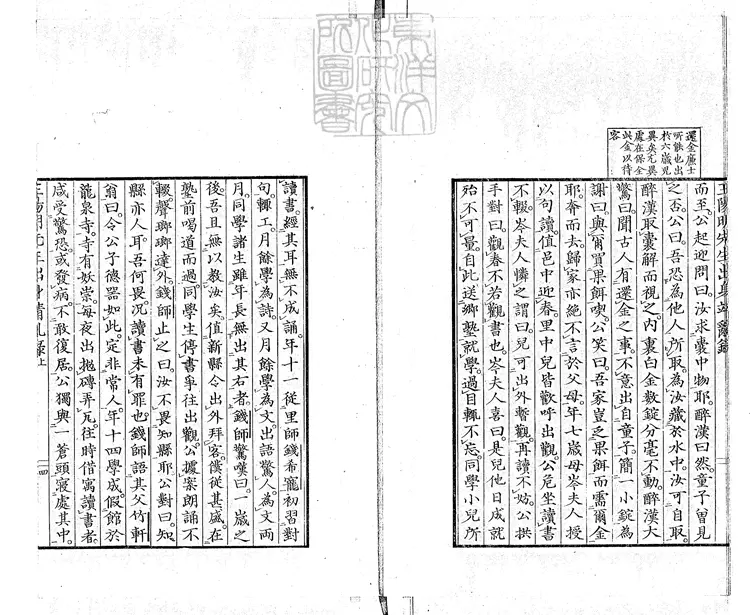 還金廉士
所能也出
於六歲兒
異矣尤異
處在保全
此金以待
客
王陽明先生出身靖亂錄
而至公起迎問曰汝求囊中物耶醉漢曰然童子曾見
之否公曰吾恐為他人所取為汝藏於水中汝可自取
醉漢取囊解而視之內裹白金數錠分毫不動醉漢大
驚曰聞古人有還金之事不意出自童子簡一小錠為
謝曰與爾買果餌喫公笑曰吾家豈乏果餌而需爾金
耶奔而去歸家亦絕不言於父母年七歲母岑夫人授
以句讀值邑中迎春里中兒皆歡呼出觀公危坐讀書
不輟岑夫人憐之謂曰兒可出外暫觀再讀不妨公拱
手對曰觀春不若觀書也岑夫人喜曰是兒他日成就
殆不可量自此送鄉塾就學過目輒不忘同學小兒所
讀書經其耳無不成誦年十一從里師錢希寵初習對
句輒工月餘學為詩又月餘學為文出語驚人為文兩
月同學諸生雖年長無出其右者錢師驚嘆曰一歲之
後吾且無以教汝矣值新縣令出外拜客僕從甚盛在
塾前喝道而過同學生停書爭往出觀公據案朗誦不
輟聲瑯瑯達外錢師止之曰汝不畏知縣耶公對曰知
縣亦人耳吾何畏況讀書未有罪也錢師語其父竹軒
翁曰令公子德器如此定非常人年十四學成假館於
龍泉寺寺有妖祟每夜出拋磚弄瓦往時借寓讀書者
咸受驚恐或發病不敢復居公獨與一蒼頭寢處其中
王陽明先生出身靖亂錄上
四
東洋文化研究所圖書